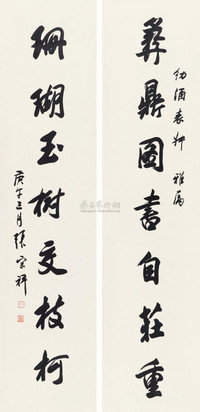 幼酒表升 雅属
彝鼎图书自庄重
珊瑚玉树交枝柯
庚午三月张宗祥